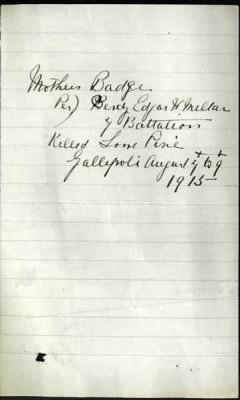 Mothers Badge
Benj Edgar W Millar
7 Battalion
Killed Lone Pine
Gallipoli August 7 to 9
1915